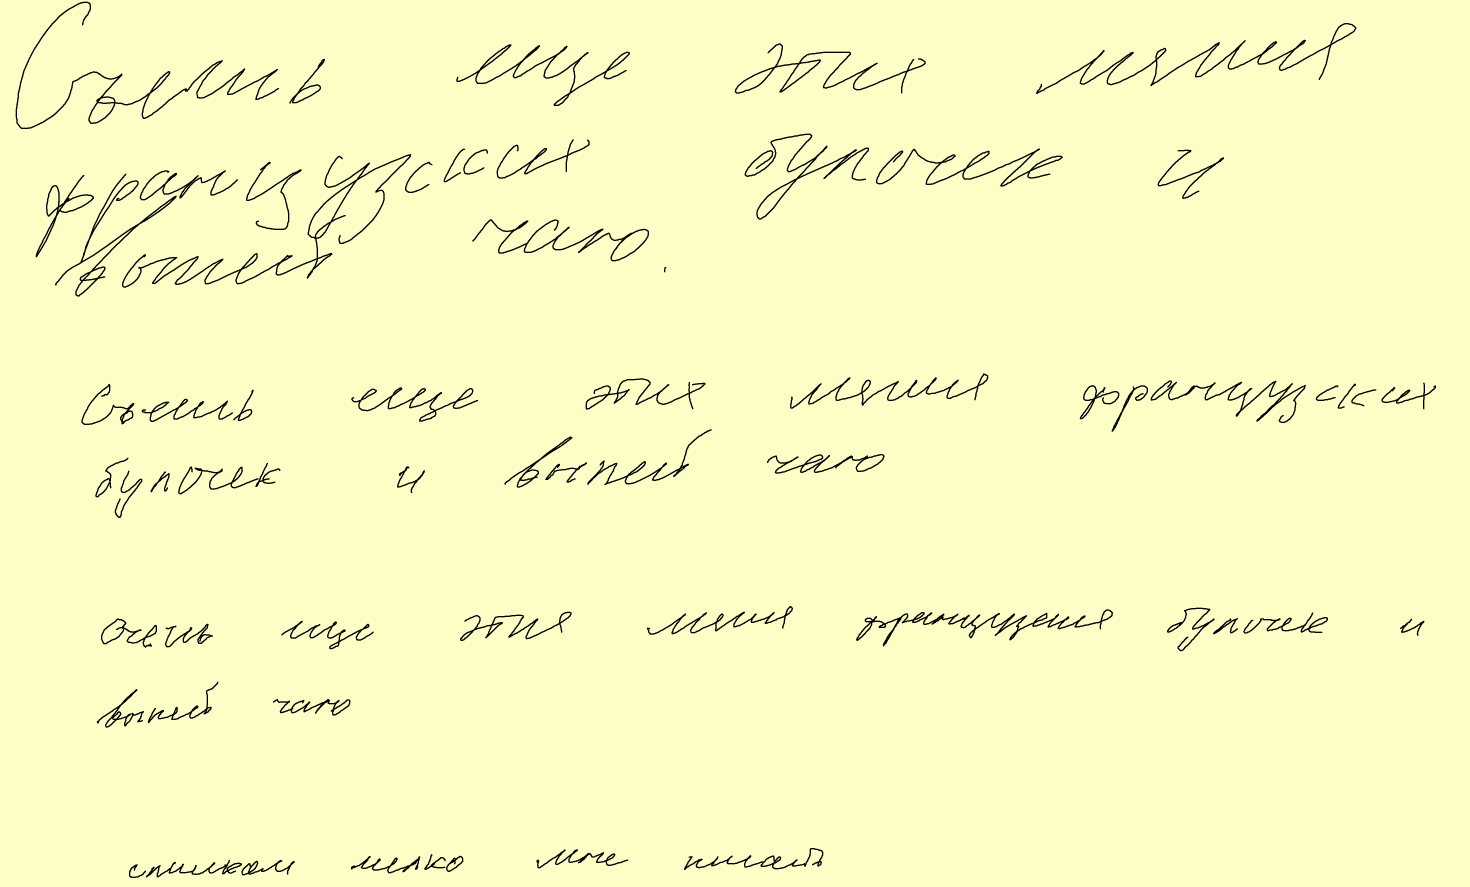 Съешь еще этих мягких
французских булочек и
выпей чаю.
Съешь еще этих мягких французских
булочек и выпей чаю
еще этих мягких французских булочек и
выпей чаю
слишком мелко мне писать